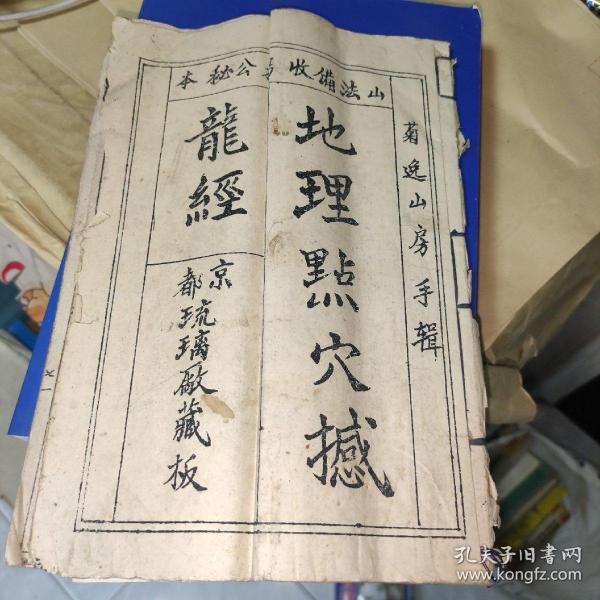 山法備收 公秘本
菊逸山房手辑
地理點穴撼
龍經
京都琉璃厰藏板
孔夫子旧书网
www.kongfz.com